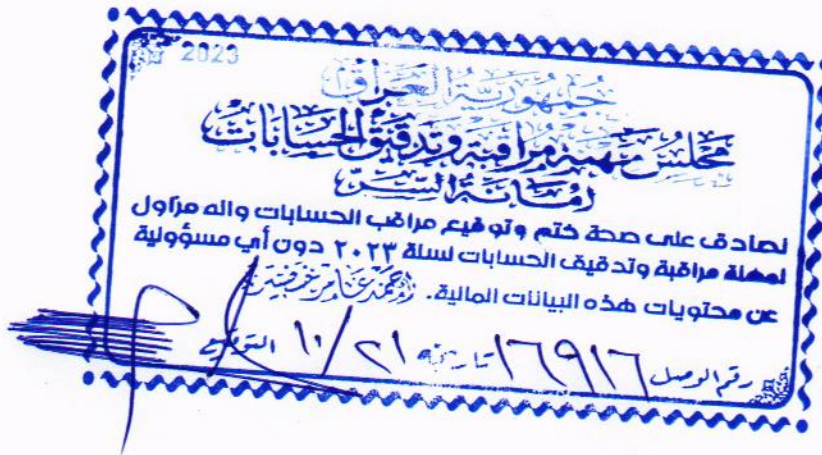 2023
جمهورية العراق
مجلس مهنة مراقبة وتدقيق الحسابات
أمانة السر
نصادق على صحة ختم وتوقيع مراقب الحسابات وانه مزاول
لمهنة مراقبة وتدقيق الحسابات لسنة ٢٠٢٣ دون أي مسؤولية
عن محتويات هذه البيانات المالية. احمد عامر
رقم الوصل ١٦٩١٦ تاريخه ١٠/٢١ التوقيع